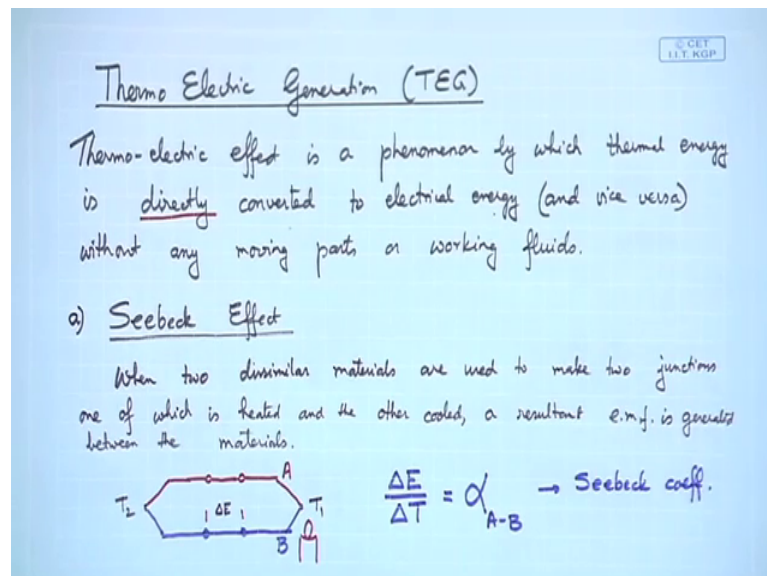 © CET
I.I.T. KGP
Thermo Electric Generation (TEG)
Thermo-electric effect is a phenomenon by which thermal energy
is directly converted to electrical energy (and vice versa)
without any moving parts or working fluids.
a) Seebeck Effect
When two dissimilar materials are used to make two junctions
one of which is heated and the other cooled, a resultant e.m.f. is generated
between the materials.
A
T₂ ΔE T₁
B
ΔE/ΔT = α_A-B → Seebeck coeff.